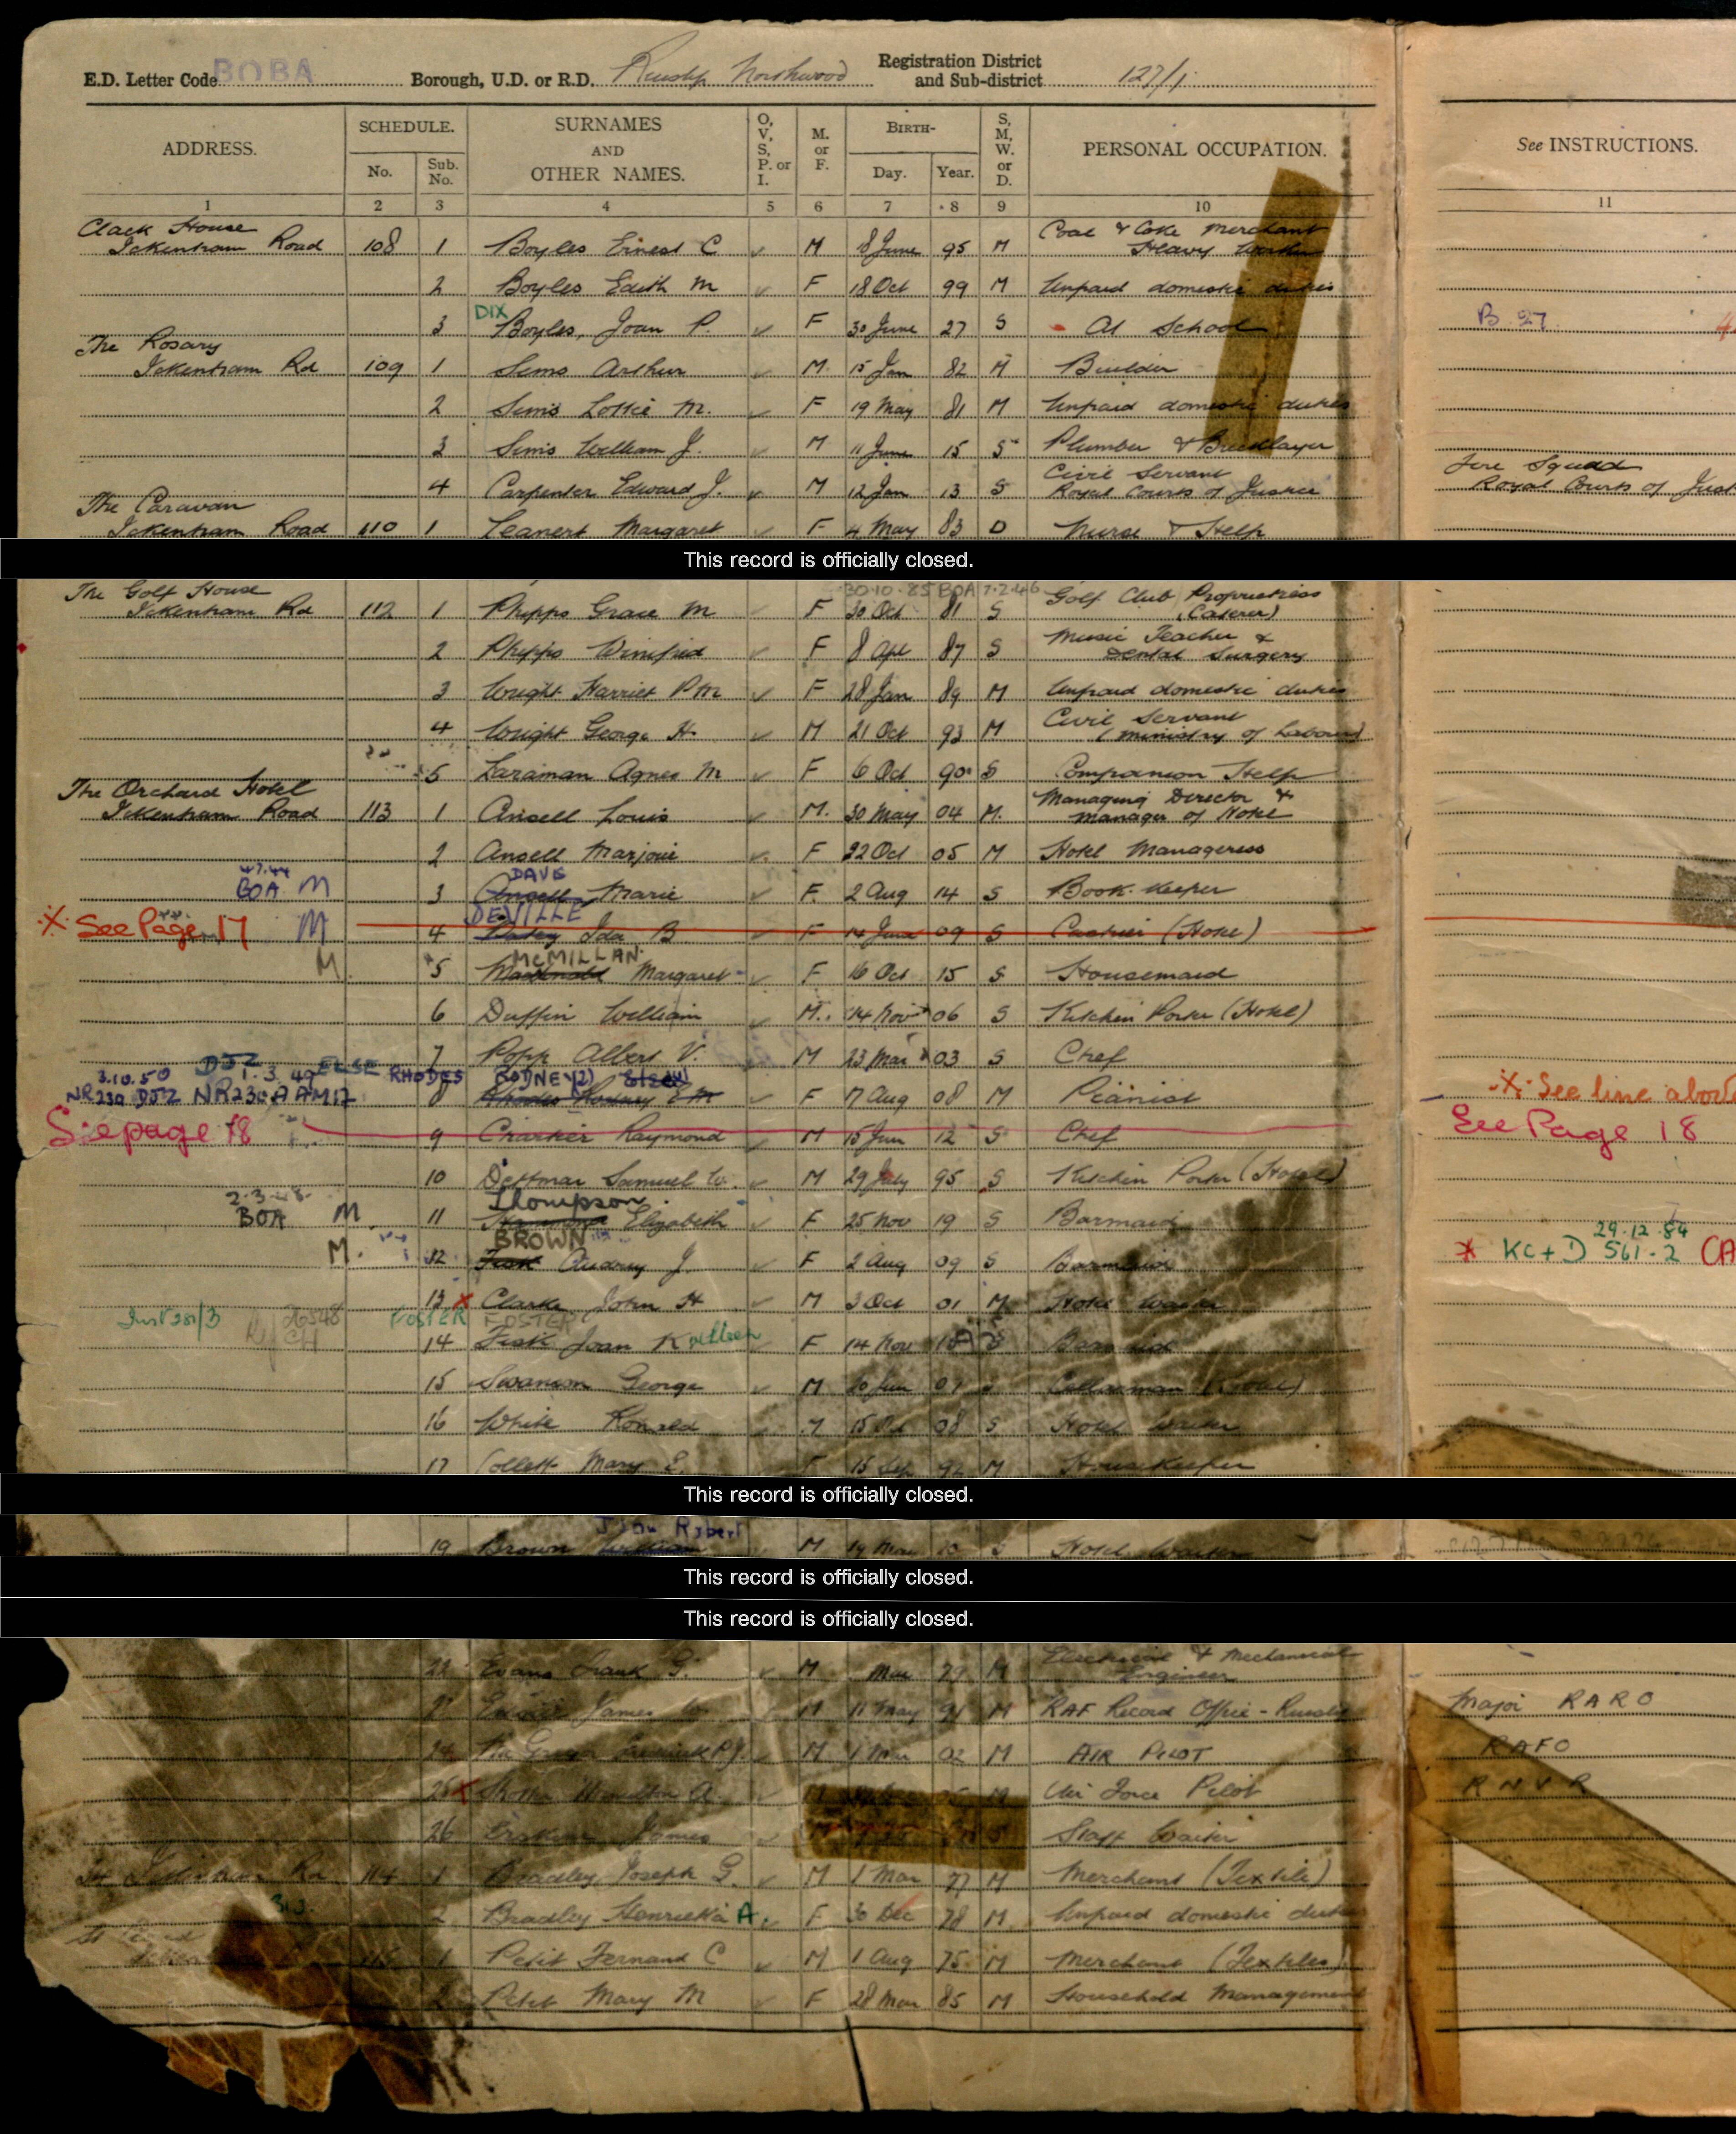 E.D. Letter Code BOBA Borough, U.D. or R.D. Ruislip Northwood Registration District and Sub-district 127/1
ADDRESS. SCHEDULE. No. Sub. No. SURNAMES AND OTHER NAMES. O, V, S, P. or I. M. or F. BIRTH- Day. Year. S, M, W. or D. PERSONAL OCCUPATION. See INSTRUCTIONS.
1 2 3 4 5 6 7 8 9 10 11
Clack House Coal & Coke Merchant
Ickenham Road 108 1 Boyles Ernest C M 8 June 95 M Heavy Worker
2 Boyles Edith M F 18 Oct 99 M Unpaid domestic duties
DIX
3 Boyles, Joan P. F 30 June 27 S At School B 27
The Rosary
Ickenham Rd 109 1 Sims Arthur M 15 Jan 82 M Builder
2 Sims Lottie M. F 19 May 81 M Unpaid domestic duties
3 Sims William J. M 11 June 15 S Plumber & Bricklayer
Civil Servant Fire Squad
4 Carpenter Edward J. M 12 Jan 13 S Royal Courts of Justice Royal Courts of Just
The Caravan
Ickenham Road 110 1 Leanert Margaret F 4 May 83 D Nurse & Help
This record is officially closed.
30.10.85 BOA 7.2.46
The Golf House Golf Club Proprietress
Ickenham Rd 112 1 Phipps Grace M F 30 Oct 81 S (Caterer)
Music Teacher &
2 Phipps Winifred F 8 Apl 87 S Dental Surgery
3 Wright Harriet P M F 28 Jan 89 M Unpaid domestic duties
Civil Servant
4 Wright George H. M 21 Oct 93 M (Ministry of Labour)
5 Laraman Agnes M F 6 Oct 90 S Companion Help
The Orchard Hotel Managing Director &
Ickenham Road 113 1 Ansell Louis M. 30 May 04 M. Manager of Hotel
2 Ansell Marjorie F 22 Oct 05 M Hotel Manageress
DAVE
BOA M 3 Ansell Marie F. 2 Aug 14 S Book-keeper
DEVILLE
See Page 17 M 4 Ida B F 14 June 09 S Cashier (Hotel)
McMILLAN
M 5 Macdonald Margaret F 16 Oct 15 S Housemaid
6 Duffin William M. 14 Nov 06 S Kitchen Porter (Hotel)
7 Popp Albert V. M 23 Mar 03 S Chef
3.10.50 DJZ 1.3.49 ELSE RHODES RODNEY (2)
NR230 DJZ NR230A AM17 8 Rhodes E M F 17 Aug 08 M Pianist See line above
See page 18 9 Charkir Raymond M 15 Jun 12 S Chef See Page 18
10 Dettmar Samuel W. M 29 July 95 S Kitchen Porter (Hotel)
Thompson
BOA M 11 Elizabeth F 25 Nov 19 S Barmaid
29.12.84
BROWN
M. 12 Fisk Audrey J. F 2 Aug 09 S Barmaid KC+D 561-2 (A
13 Clarke John H M 3 Oct 01 M Hotel Waiter
FOSTER FOSTER
14 Fisk Joan Kathleen F 14 Nov S Barmaid
15 Swanson George M 20 Jun 01 Cellarman (Hotel)
16 White Ronald M 15 Oct 08 S Hotel Waiter
17 Collett Mary E. F 15 Sep 92 M Housekeeper
This record is officially closed.
John Robert
19 Brown William M 19 10 S Hotel Waiter
This record is officially closed.
This record is officially closed.
Electrical & Mechanical
22 Evans Frank G. M Mar 79 M Engineer
James W. M 11 May 91 M RAF Record Office - Ruislip Major RARO
24 M 1 Mar 02 M AIR PILOT RAFO
25 A. M M Air Force Pilot RNVR
26 Erskine James M Staff Waiter
Rd 114 1 Bradley Joseph G. M 1 Mar 77 M Merchant (Textile)
2 Bradley Henrietta A. F 30 Dec 78 M Unpaid domestic duties
1 Petit Fernand C M 1 Aug 75 M Merchant (Textiles)
2 Petit Mary M F 28 Mar 85 M Household Management